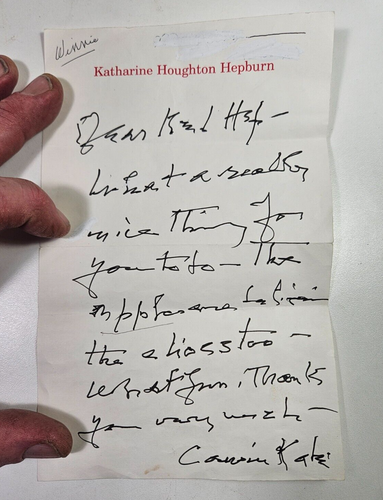 Winnie
Katharine Houghton Hepburn
Dear Hep –
What a really
nice thing for
you to do – The
the too –
What fun. Thanks
you very much –
Cousin Kate